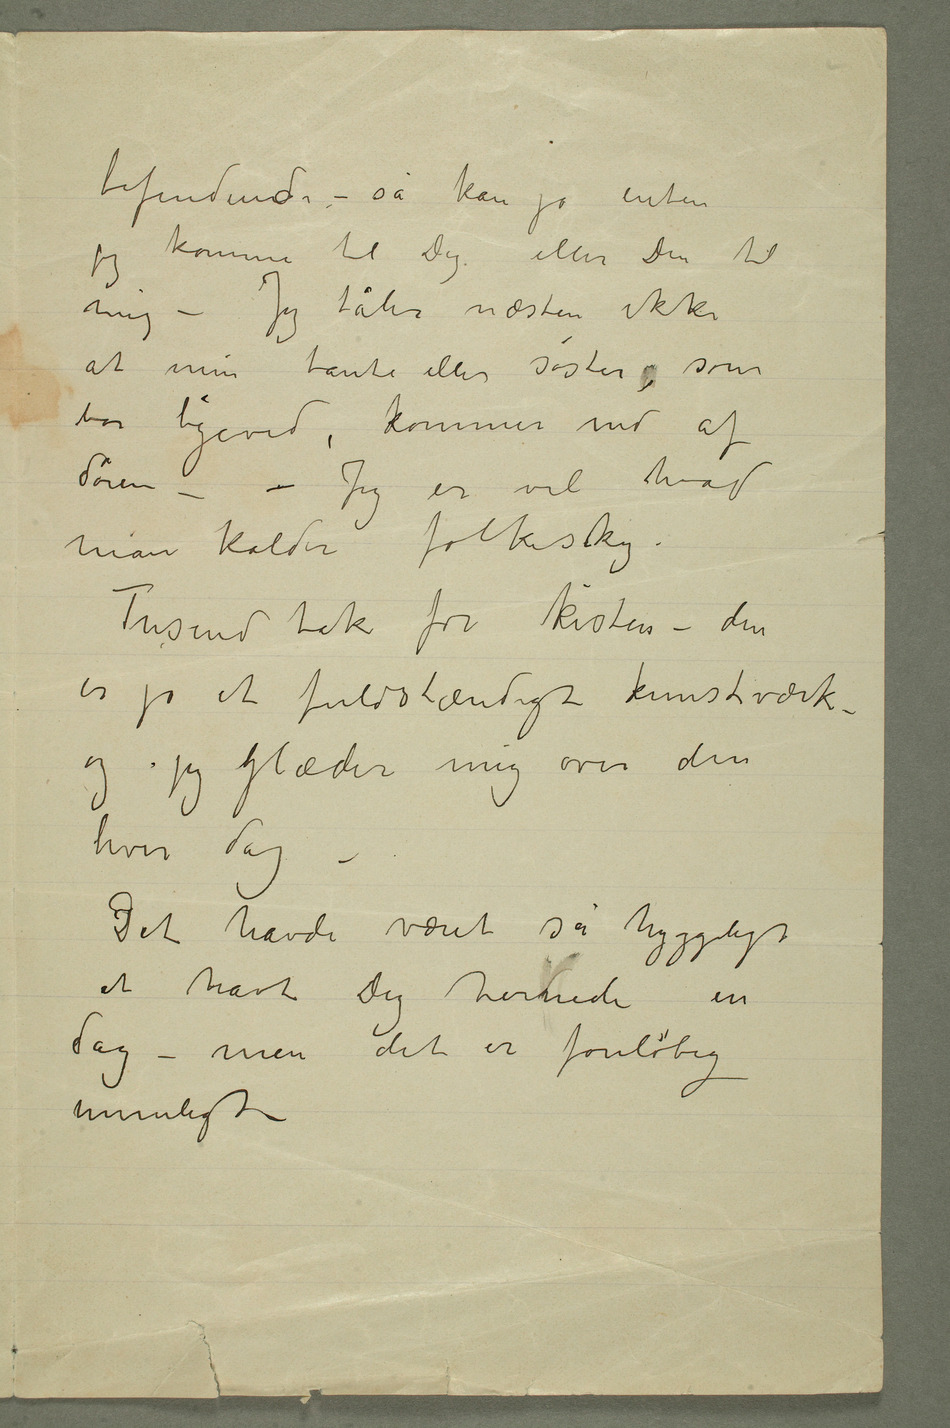 befindende – så kan jo enten
jeg komme til Dig eller Du til
mig – Jeg tåler næsten ikke
at min tante eller søster, som
bor ligeved, kommer ind af
døren – – Jeg er vel hvad
man kalder folkesky.
Tusend tak for kisten – den
er jo et fuldstændigt kunstværk –
og jeg glæder mig over den
hver dag –
Det havde været så hyggeligt
at havt Dig hernede en
dag – men det er foreløbig
umuligt –